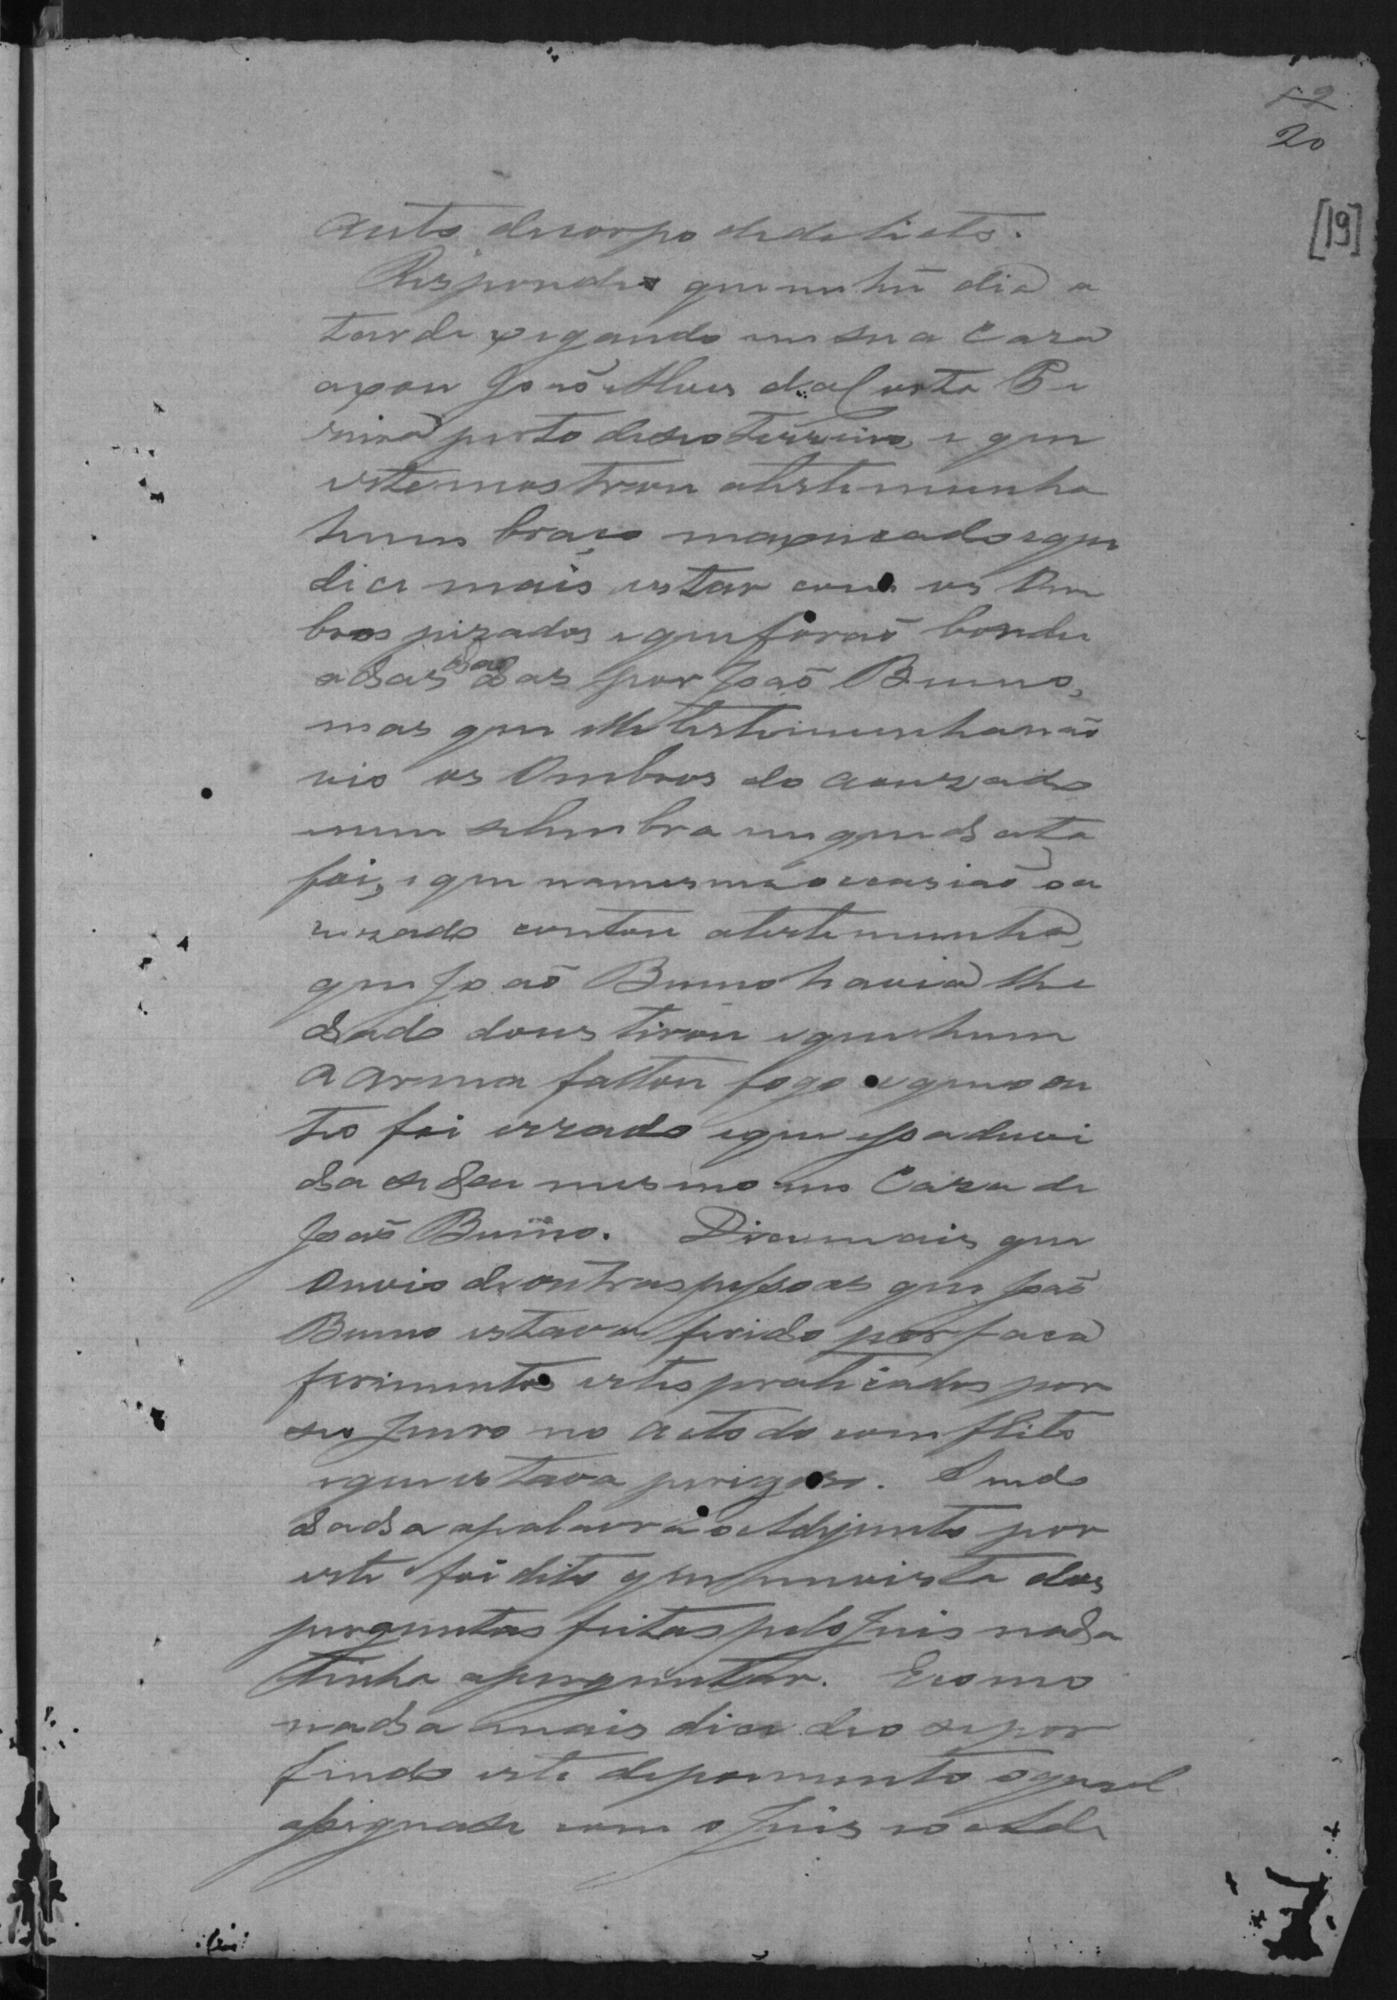 19
20
[19]
auto decorpo dedelicto.
Respondeo que nuhũ dia a
tarde xegando em sua Caza
axou João Alves da Costa Pe
reira perto deseo terreiro, e que
estemostrou atestemunha
hum braço maxucado eque
dice mais estar com os Om
bros pizados eque forão borda
adas dadas por João Bueno,
mas que elle testemunha não
vio os Ombros do acuzado
nem selembra em que data
foi, e que namesma occasião oa
cuzado contou atestemunha,
que João Bueno havia lhe
dado dous tirou eque hum
a arma faltou fogo e que o ou
tro foi errado eque essa duvi
da sedeu mesmo em Caza de
João Bueno. Dice mais que
Ouvio de outras pessoas que João
Bueno estava ferido por faca
ferimentos estes praticados por
seo Genro no acto do comflito
eque estava perigoso. Sendo
dada apalavra ao Adjunto por
este foi dito que em vista das
perguntas feitas pelo Juis nada
tinha aperguntar. Ecomo
nada mais dice deo se por
findo este depoimento o qual
assignase com o Juis eo Ad